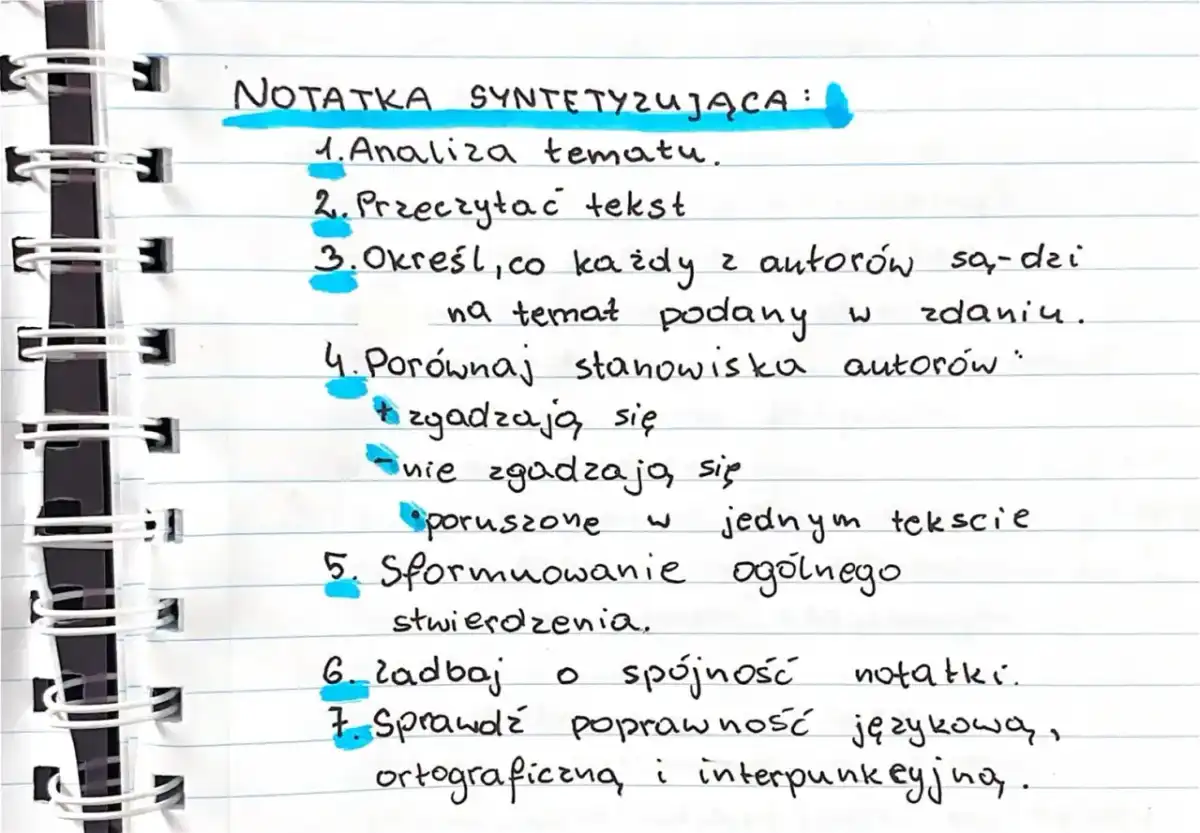 NOTATKA SYNTETYZUJĄCA:
1. Analiza tematu.
2. Przeczytać tekst
3. Określ, co każdy z autorów są,-dzi
na temat podany w zdaniu.
4. Porównaj stanowiska autorów:
+ zgadzają się
- nie zgadzają się
• poruszone w jednym tekscie
5. Sformuowanie ogólnego
stwierdzenia.
6. Zadbaj o spójność notatki.
7. Sprawdź poprawność językową,
ortograficzną i interpunkcyjną.